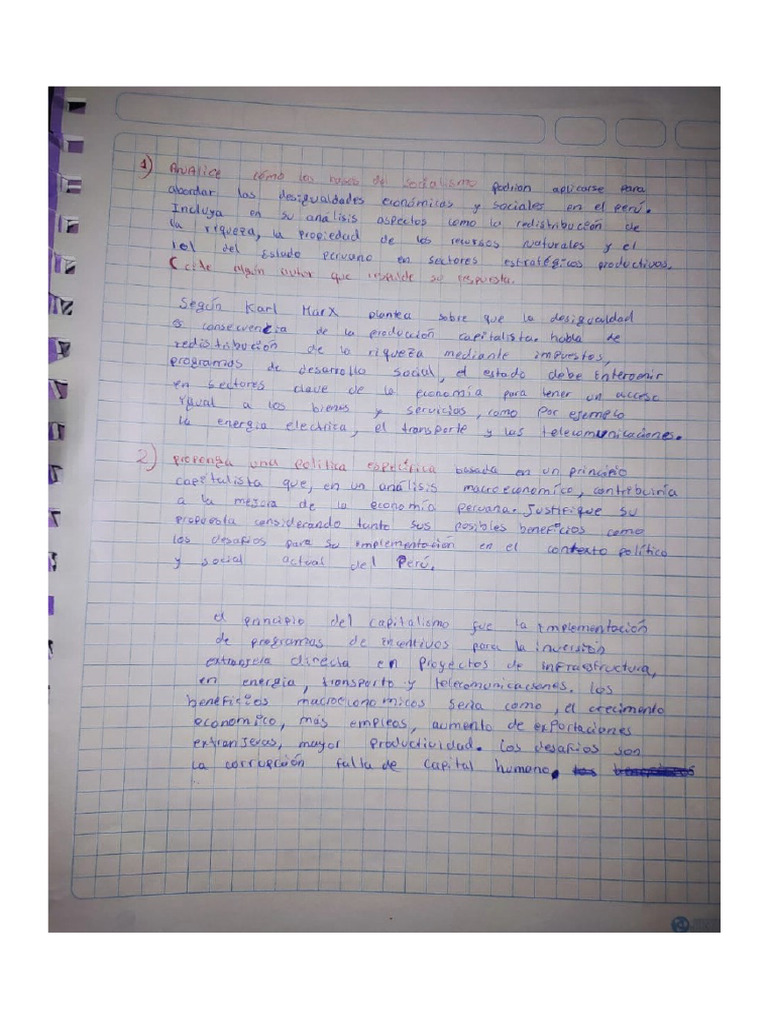 1) Analice cómo las bases del socialismo podrian aplicarse para
abordar las desigualdades económicas y sociales en el Perú.
Incluya en su análisis aspectos como la redistribución de
la riqueza, la propiedad de los recursos naturales y el
rol del Estado peruano en sectores estratégicos productivos.
(cite algún autor que respalde su respuesta.
Según Karl Marx plantea sobre que la desigualdad
es consecuencia de la producción capitalista. habla de
redistribución de la riqueza mediante impuestos,
programas de desarrollo social, el estado debe intervenir
en sectores clave de la economía para tener un acceso
igual a los bienes y servicios, como por ejemplo
la energia electrica, el transporte y las telecomunicaciones.
2) proponga una politica especifica basada en un principio
capitalista que, en un análisis macroeconomico, contribuiria
a la mejora de la economía peruana. Justifique su
propuesta considerando tanto sus posibles beneficios como
los desafios para su implementación en el contexto político
y social actual del Perú.
el principio del capitalismo fue la implementación
de programas de incentivos para la inversión
extranjera directa en proyectos de infraestructura,
en energia, transporte y telecomunicaciones. los
beneficios macroeconomicos seria como, el crecimiento
economico, más empleos, aumento de exportaciones
extranjeras, mayor productividad. los desafios son
la corrupción falta de capital humano.